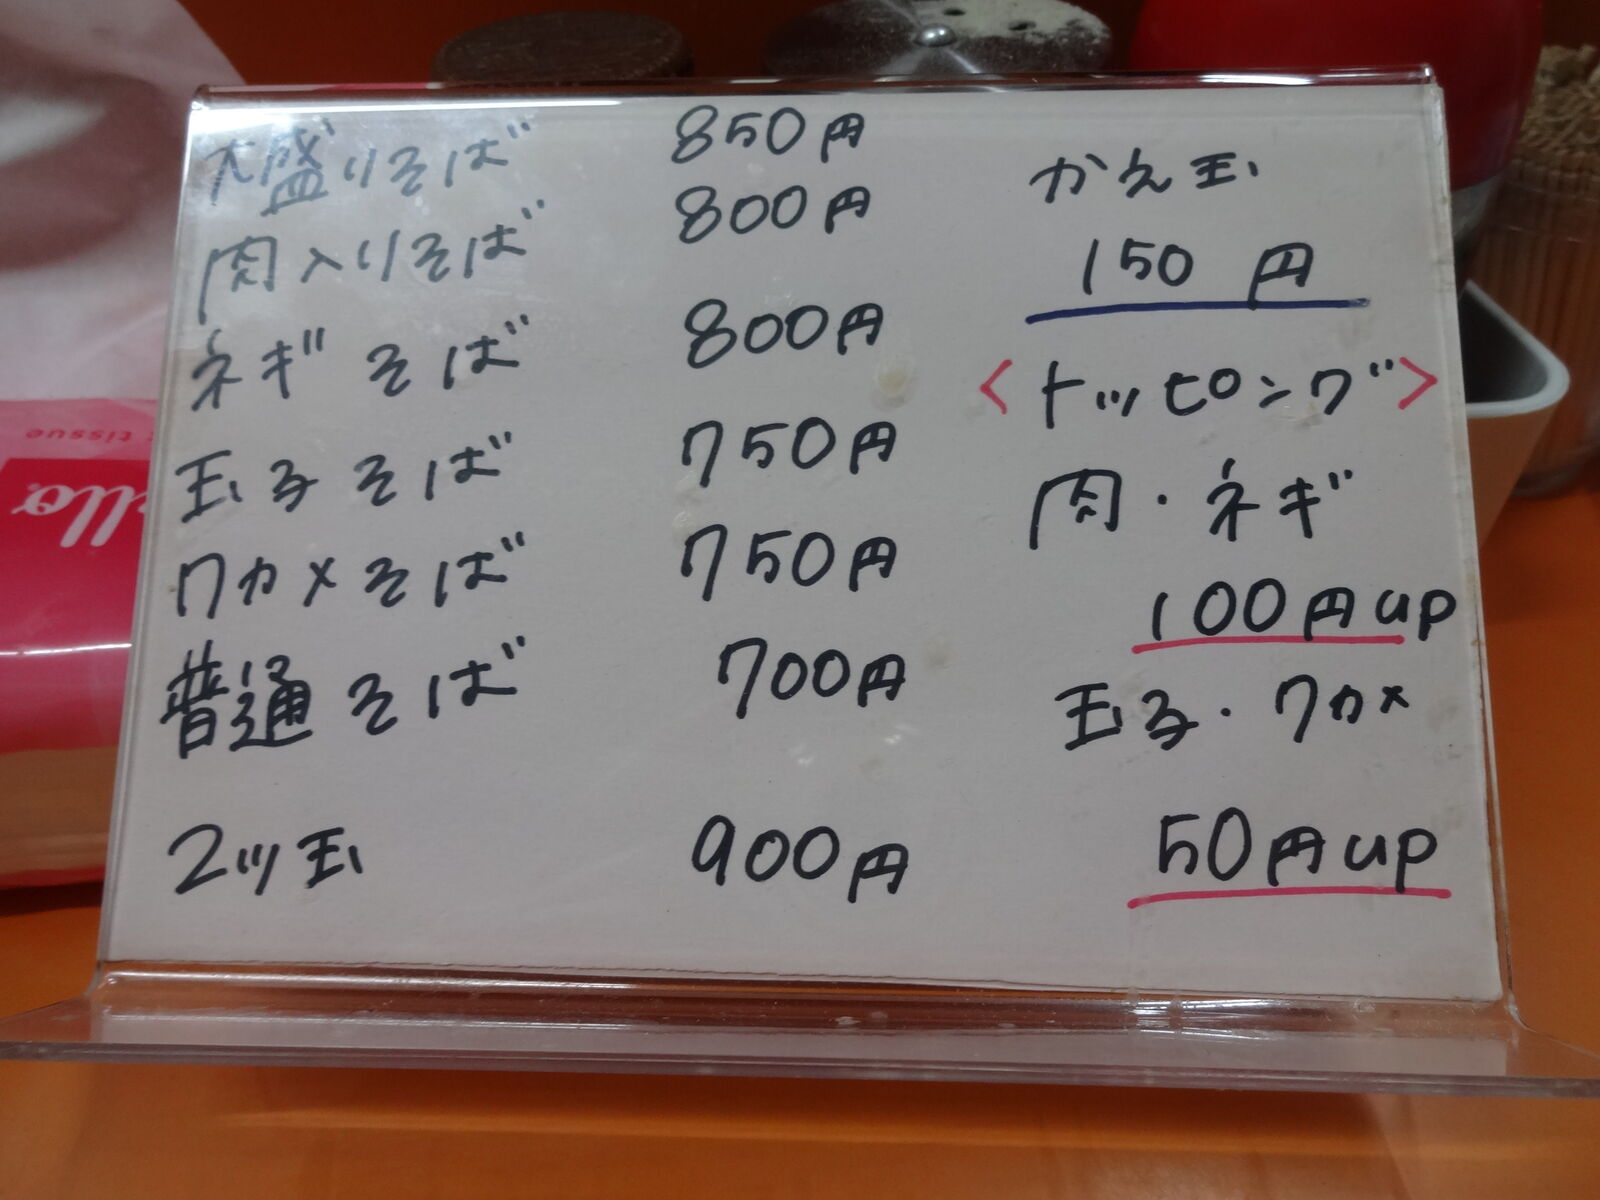 大盛りそば 850円
肉入りそば 800円
ネギそば 800円
玉子そば 750円
ワカメそば 750円
普通そば 700円
2ッ玉 900円
かえ玉
150円
<トッピング>
肉・ネギ
100円up
玉子・ワカメ
50円up
tissue
ello